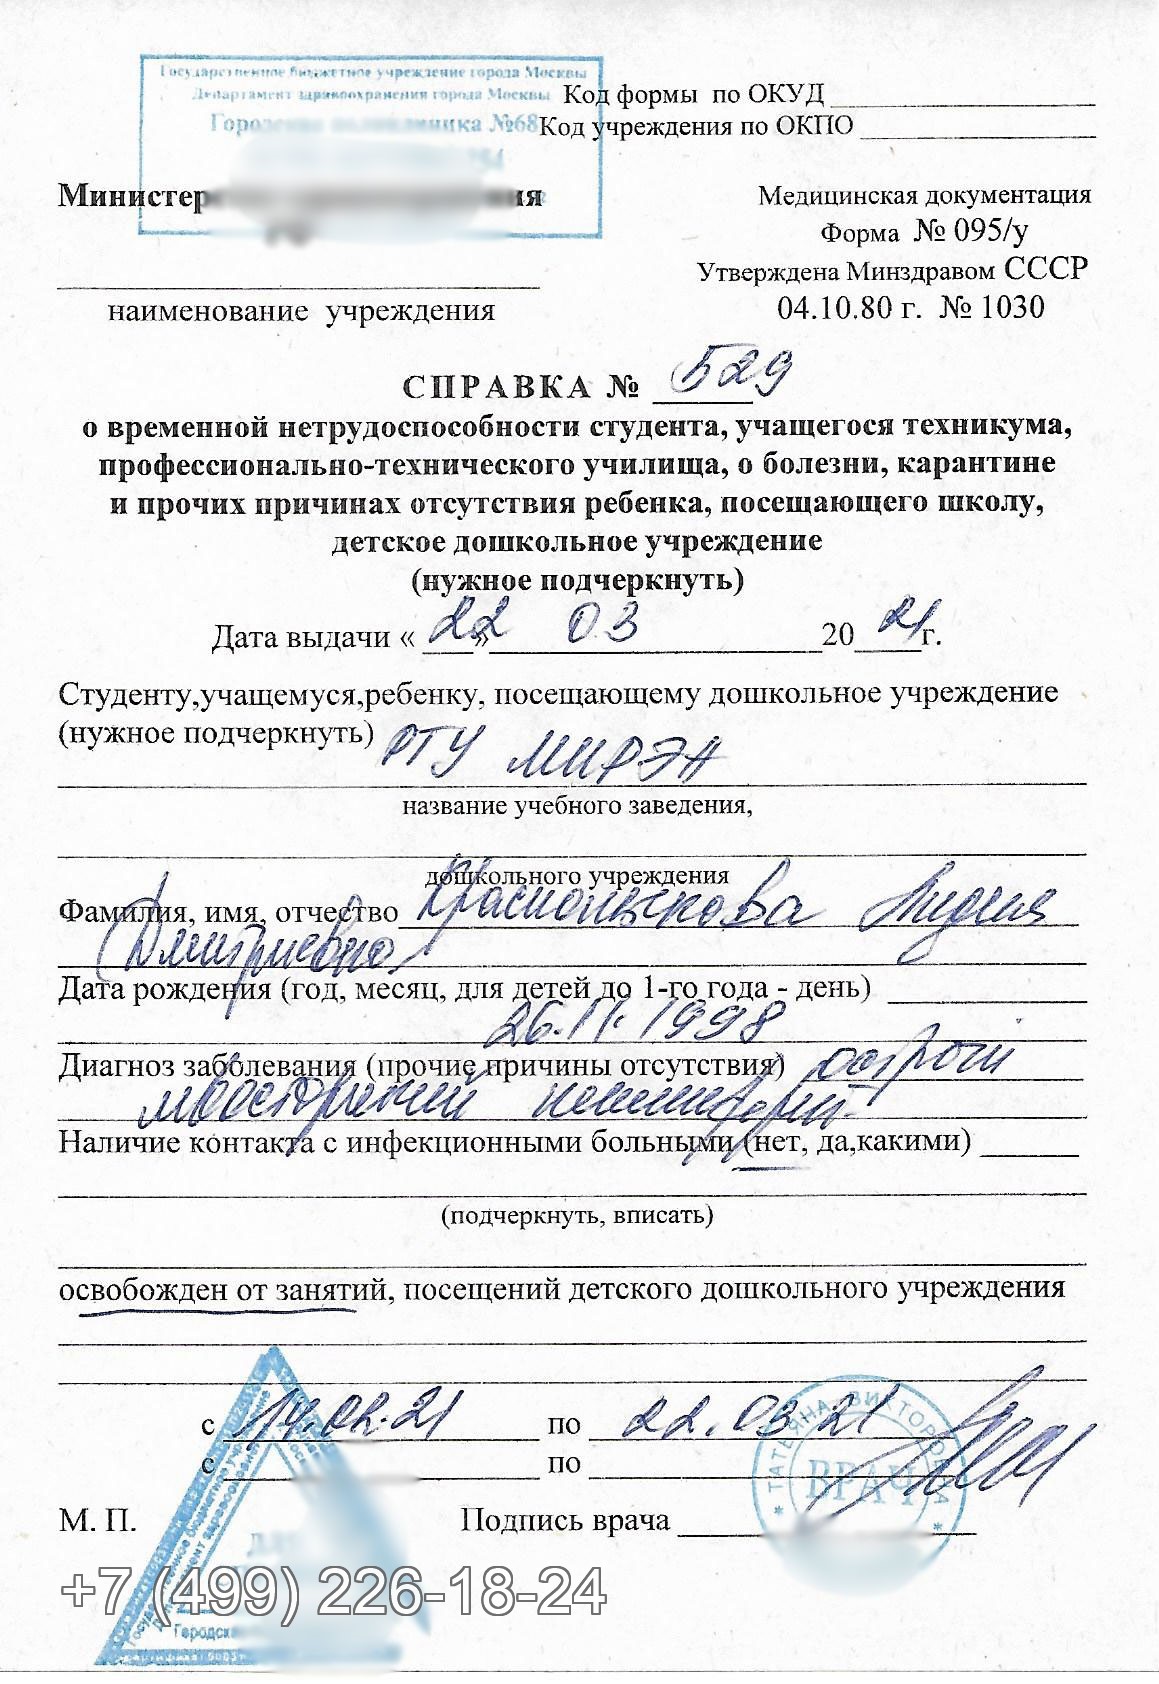 Государственное бюджетное учреждение города Москвы
Департамент здравоохранения города Москвы
Городская поликлиника №68
Код формы по ОКУД
Код учреждения по ОКПО
Медицинская документация
Форма № 095/у
Утверждена Минздравом СССР
04.10.80 г. № 1030
наименование учреждения
СПРАВКА № 529
о временной нетрудоспособности студента, учащегося техникума,
профессионально-технического училища, о болезни, карантине
и прочих причинах отсутствия ребенка, посещающего школу,
детское дошкольное учреждение
(нужное подчеркнуть)
Дата выдачи « 22 » 03 20 21 г.
Студенту,учащемуся,ребенку, посещающему дошкольное учреждение
(нужное подчеркнуть) РТУ МИРЭА
название учебного заведения,
дошкольного учреждения
Фамилия, имя, отчество Лидия
Дмитриевна
Дата рождения (год, месяц, для детей до 1-го года - день)
26.11.1998
Диагноз заболевания (прочие причины отсутствия) острый
Наличие контакта с инфекционными больными (нет, да,какими)
(подчеркнуть, вписать)
освобожден от занятий, посещений детского дошкольного учреждения
с 14.02.21 по 22.03.21
с по
ТАТЬЯНА ВИКТОРОВНА
ВРАЧ
М. П. Подпись врача
+7 (499) 226-18-24